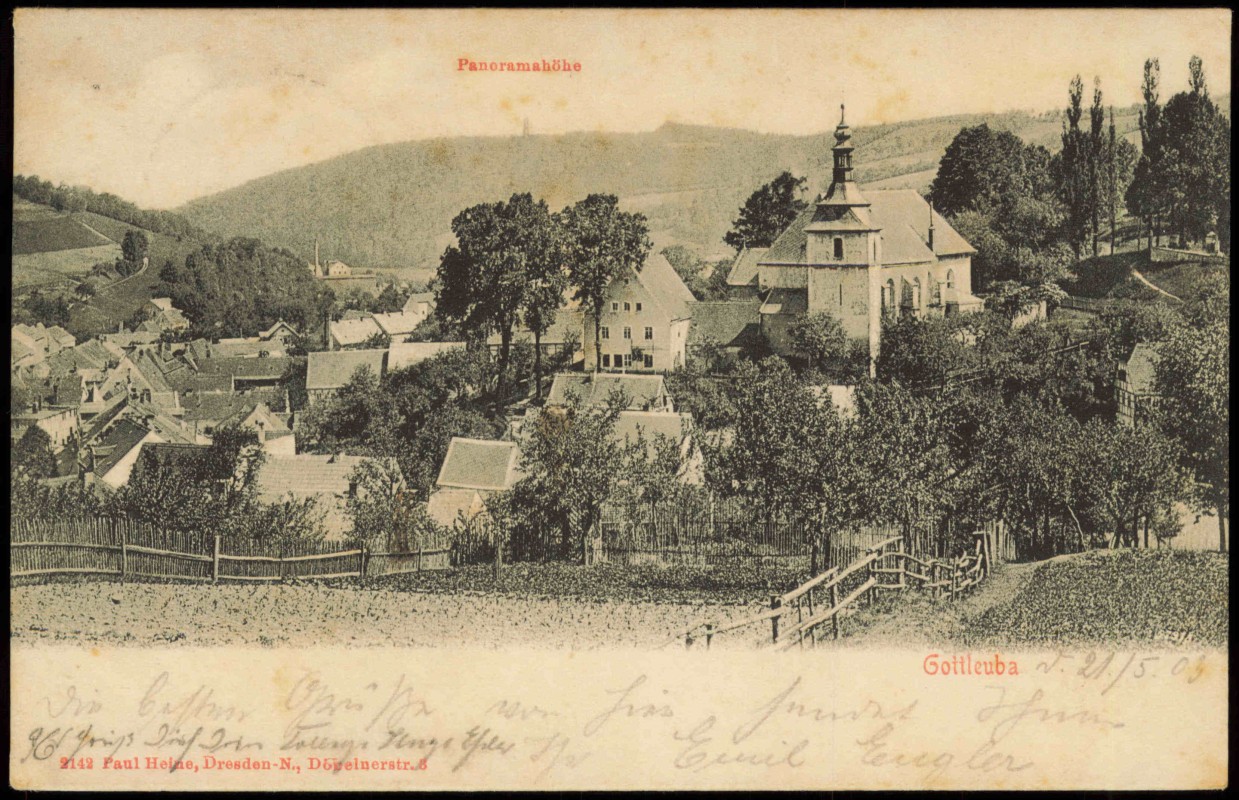 Panoramahöhe
Gottleuba d. 21./5. 03
Die besten Grüße von hier sendet Ihnen
Ihr Emil Engler
grüßt Dich Dein
2142 Paul Heine, Dresden-N., Döbelnerstr. 8